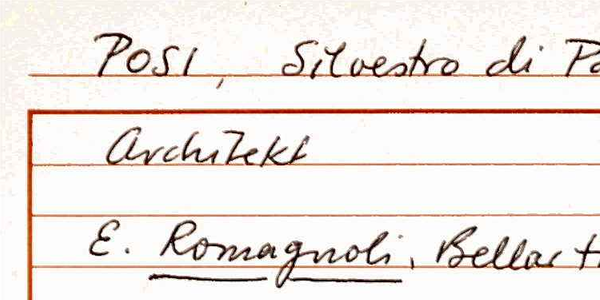 POSI, Silvestro di Pa
Architekt
E. Romagnoli, Bellart